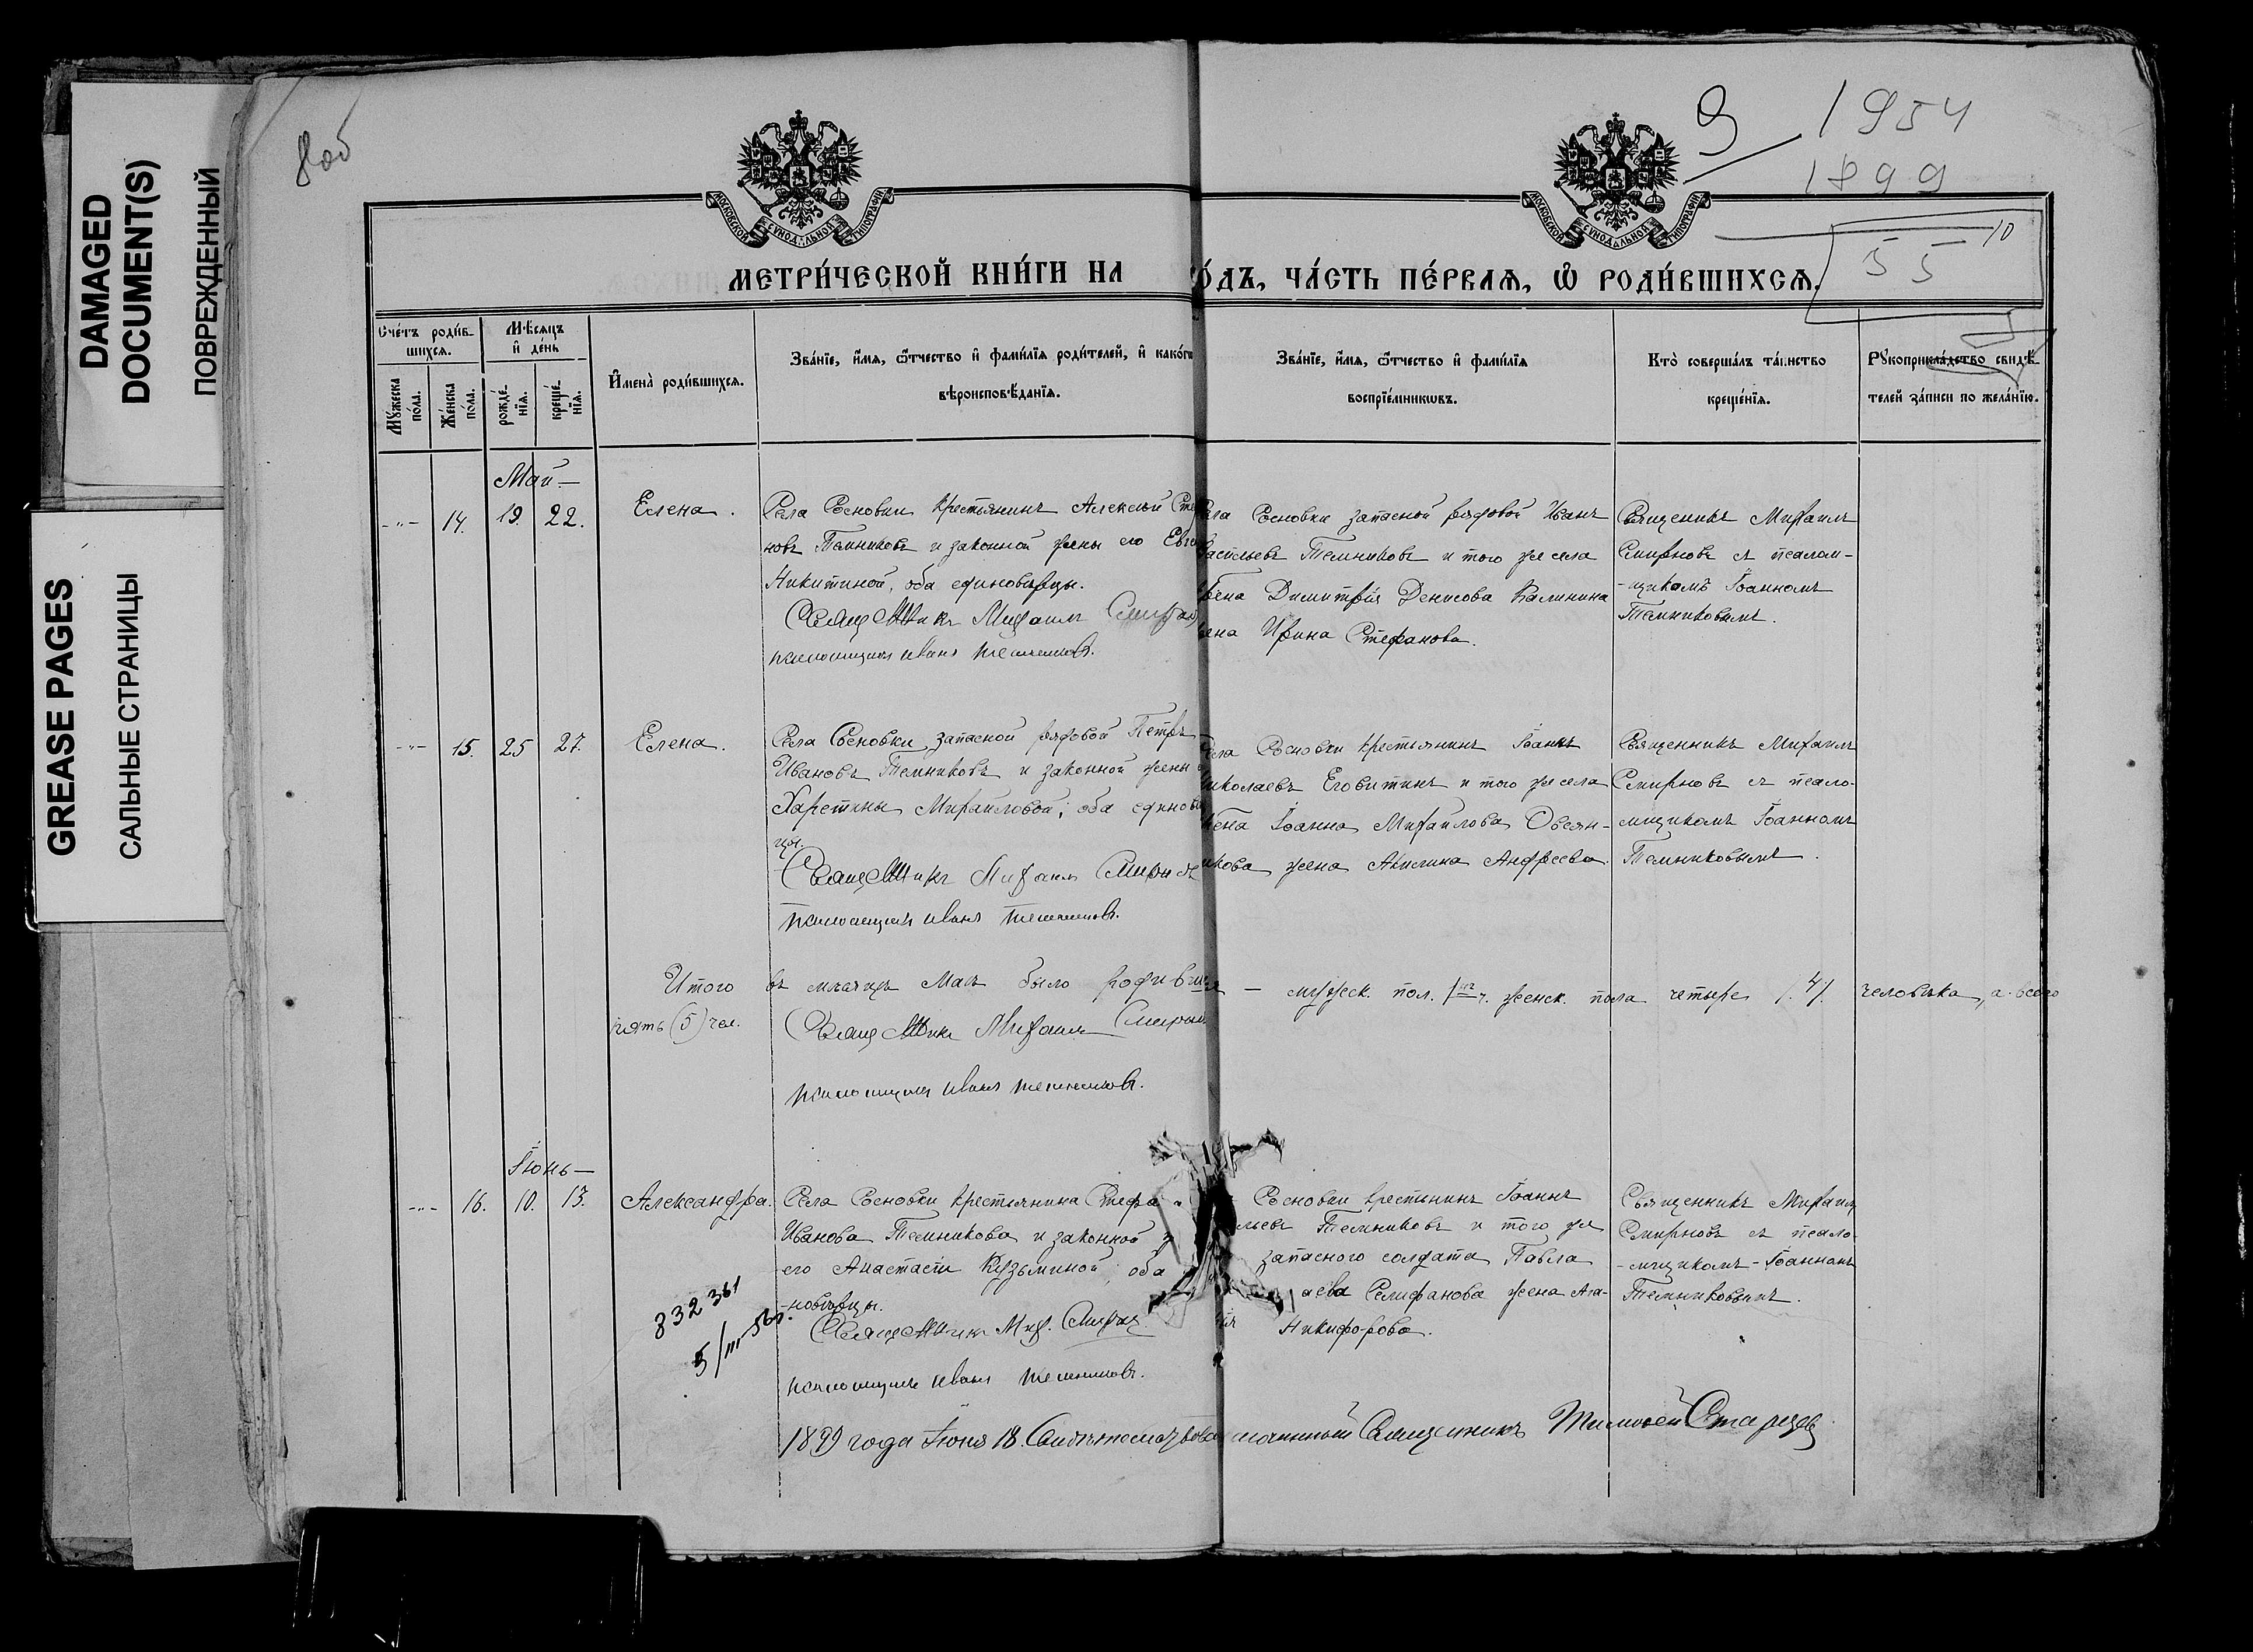 DAMAGED
DOCUMENT(S)
ПОВРЕЖДЕННЫЙ
GREASE PAGES
САЛЬНЫЕ СТРАНИЦЫ
8 об
9
1954
1899
МОСКОВСКОЙ СѴНОДАЛЬНОЙ ТИПОГРАФІИ
МОСКОВСКОЙ СѴНОДАЛЬНОЙ ТИПОГРАФІИ
55 10
МЕТРИ́ЧЕСКОЙ КНИ́ГИ НА
О́ДЪ, ЧА́СТЬ ПЕ́РВАѦ, Ѽ РОДИ́ВШИХСѦ.
Сче́тъ роди́в-
шихсѧ.
Мꙋ́жеска по́ла.
Же́нска по́ла.
Мѣ́сѧцъ
и҆ де́нь
рожде́-
нїѧ.
креще́-
нїѧ.
И҆мена̀ роди́вшихсѧ.
Зва́нїе, и҆́мѧ, ѻ҆́тчество и҆ фами́лїѧ роди́телей, и҆ како́гѡ
вѣроисповѣ́данїѧ.
Зва́нїе, и҆́мѧ, ѻ҆́тчество и҆ фами́лїѧ
воспрїе́мникѡвъ.
Кто̀ соверша́лъ та́инство
креще́нїѧ.
Рꙋкоприкла́дство свидѣ́-
телей за́писи по жела́нїю.
Май —
-"- 14. 19. 22. Елена.
Села Сосновки крестьянинъ Алексѣй Сте
новъ Темниковъ и законной жены его Евг
Никитиной, оба единовѣрцы.
Священникъ Михаилъ Смирнов
псаломщикъ Иванъ Темниковъ.
Села Сосновки запасной рядовой Иванъ
Васильевъ Темниковъ и того же села
Димитрія Денисова Калинина
жена Ирина Стефанова.
Священникъ Михаилъ
Смирновъ съ псалом-
-щикомъ Іоанномъ
Темниковымъ.
-"- 15. 25 27. Елена.
Села Сосновки запасной рядовой Петръ
Ивановъ Темниковъ и законной жены
Харетины Михайловой; оба единовѣ
цы.
Священникъ Михаилъ Смирнов
псаломщикъ Иванъ Темниковъ.
Села Сосновки крестьянинъ Іоаннъ
Николаевъ Еговитинъ и того же села
Іоанна Михайлова Овсян-
икова жена Акилина Андреева.
Священникъ Михаилъ
Смирновъ съ псало-
мщикомъ Іоанномъ
Темниковымъ.
Итого въ мѣсяцѣ Маѣ было родившихся — мужеск. пол. 1 ч. женск. пола четыре /4/. человѣка, а всего
пять (5) чел.
Священникъ Михаилъ Смирнов
псаломщикъ Иванъ Темниковъ.
Іюнь —
-"- 16. 10. 13. Александра.
Села Сосновки крестьянина Стефа
Иванова Темникова и законной
его Анастасіи Кузьминой; оба
-новѣрцы.
Священникъ Мих. Смирнов
псаломщикъ Иванъ Темниковъ.
832361
5/III-56г.
Сосновки крестьянинъ Іоаннъ
льевъ Темниковъ и того же
запасного солдата Павла
аева Селифанова жена Ага-
Никифорова.
Священникъ Михаилъ
Смирновъ съ псало-
-мщикомъ-Іоанномъ
Темниковымъ.
1899 года Іюня 18. Свидѣтельствовалъ Священникъ Тимоѳей Старцев